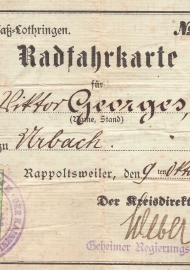 aß-Lothringen. №
Radfahrkarte
für
Viktor Georges,
(Name, Stand)
zu Urbach.
Rappoltsweiler, den 9ten Okt
Der Kreisdirekt
Weber
Geheimer Regierungs